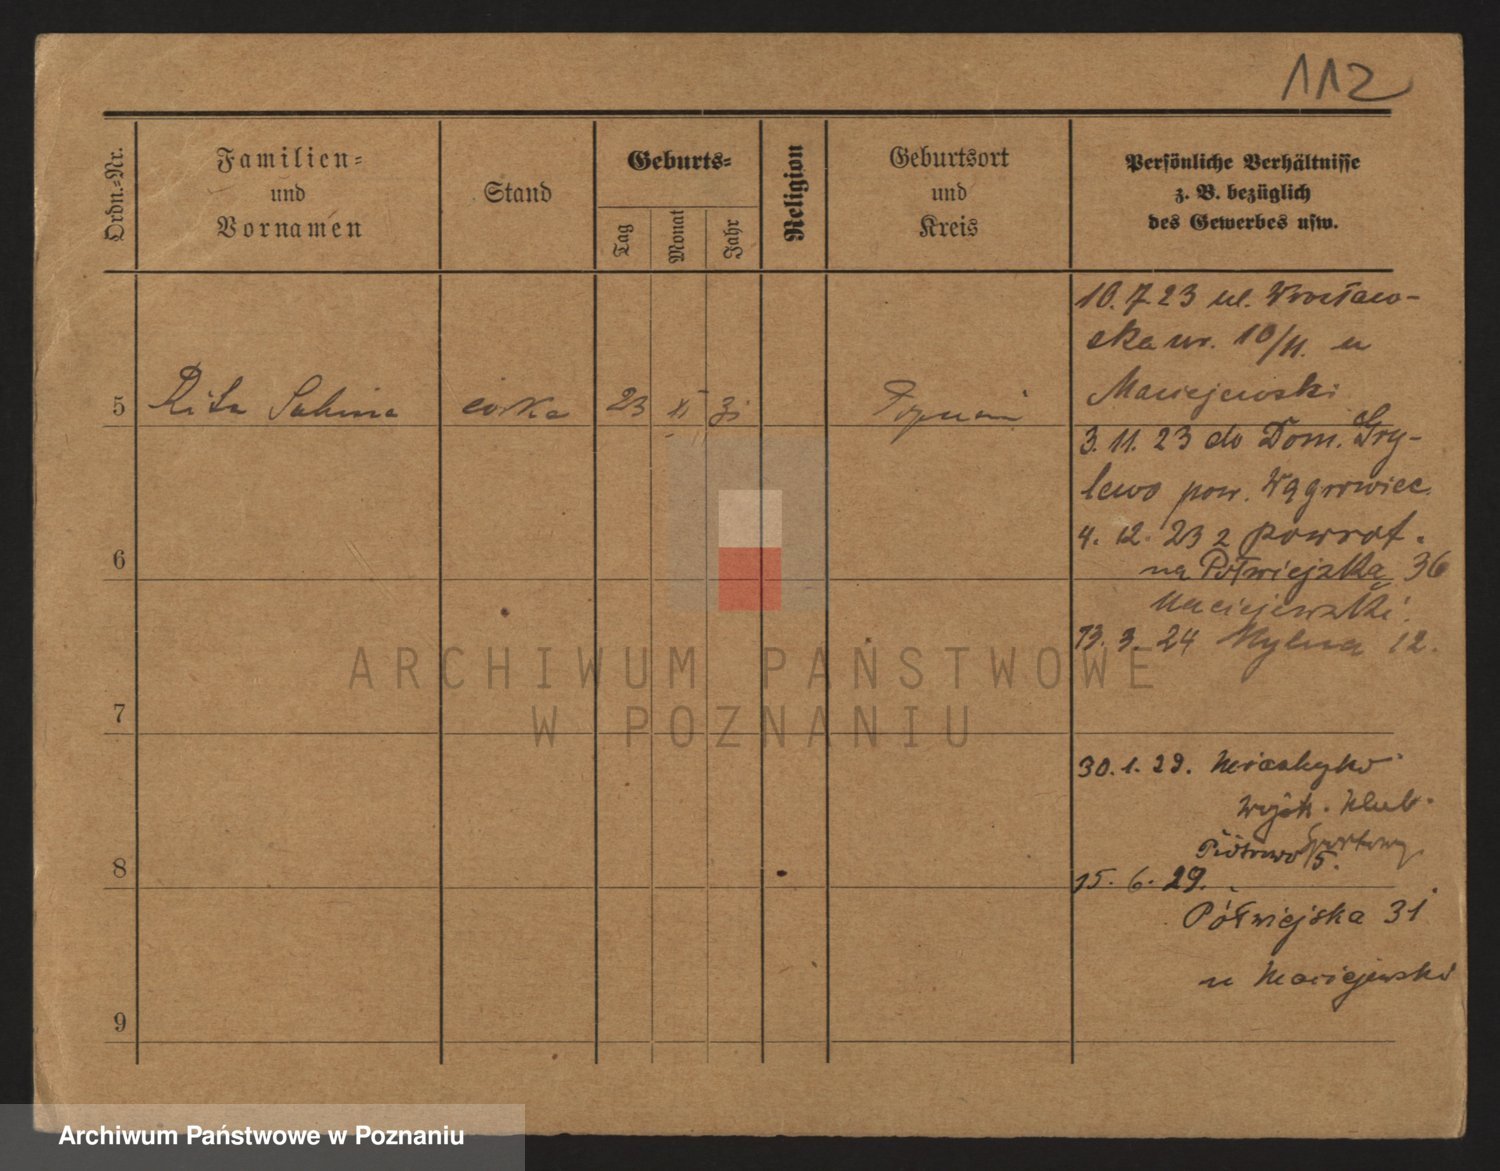 112
Ordn.-Nr.
Familien-
und
Vornamen
Stand
Geburts-
Tag
Monat
Jahr
Religion
Geburtsort
und
Kreis
Persönliche Verhältnisse
z. B. bezüglich
des Gewerbes usw.
10. 7 23 ul. Wrocław-
ska nr. 10/11. u
Maciejewski
5 Rita Sabina córka 23 XI 31 Poznań
3. 11. 23 do Dom. Gry-
lewo pow. Wągrowiec
4. 12. 23 z powrot.
6
na Półwiejską 36
Maciejewski.
13. 3. 24 Mylna 12.
7
30. 1. 29.
Wojsk. Klub.
Sportowy
Piotrowo 5.
8
15. 6. 29.
Półwiejska 31
u Maciejewski
9
ARCHIWUM PAŃSTWOWE
W POZNANIU
Archiwum Państwowe w Poznaniu